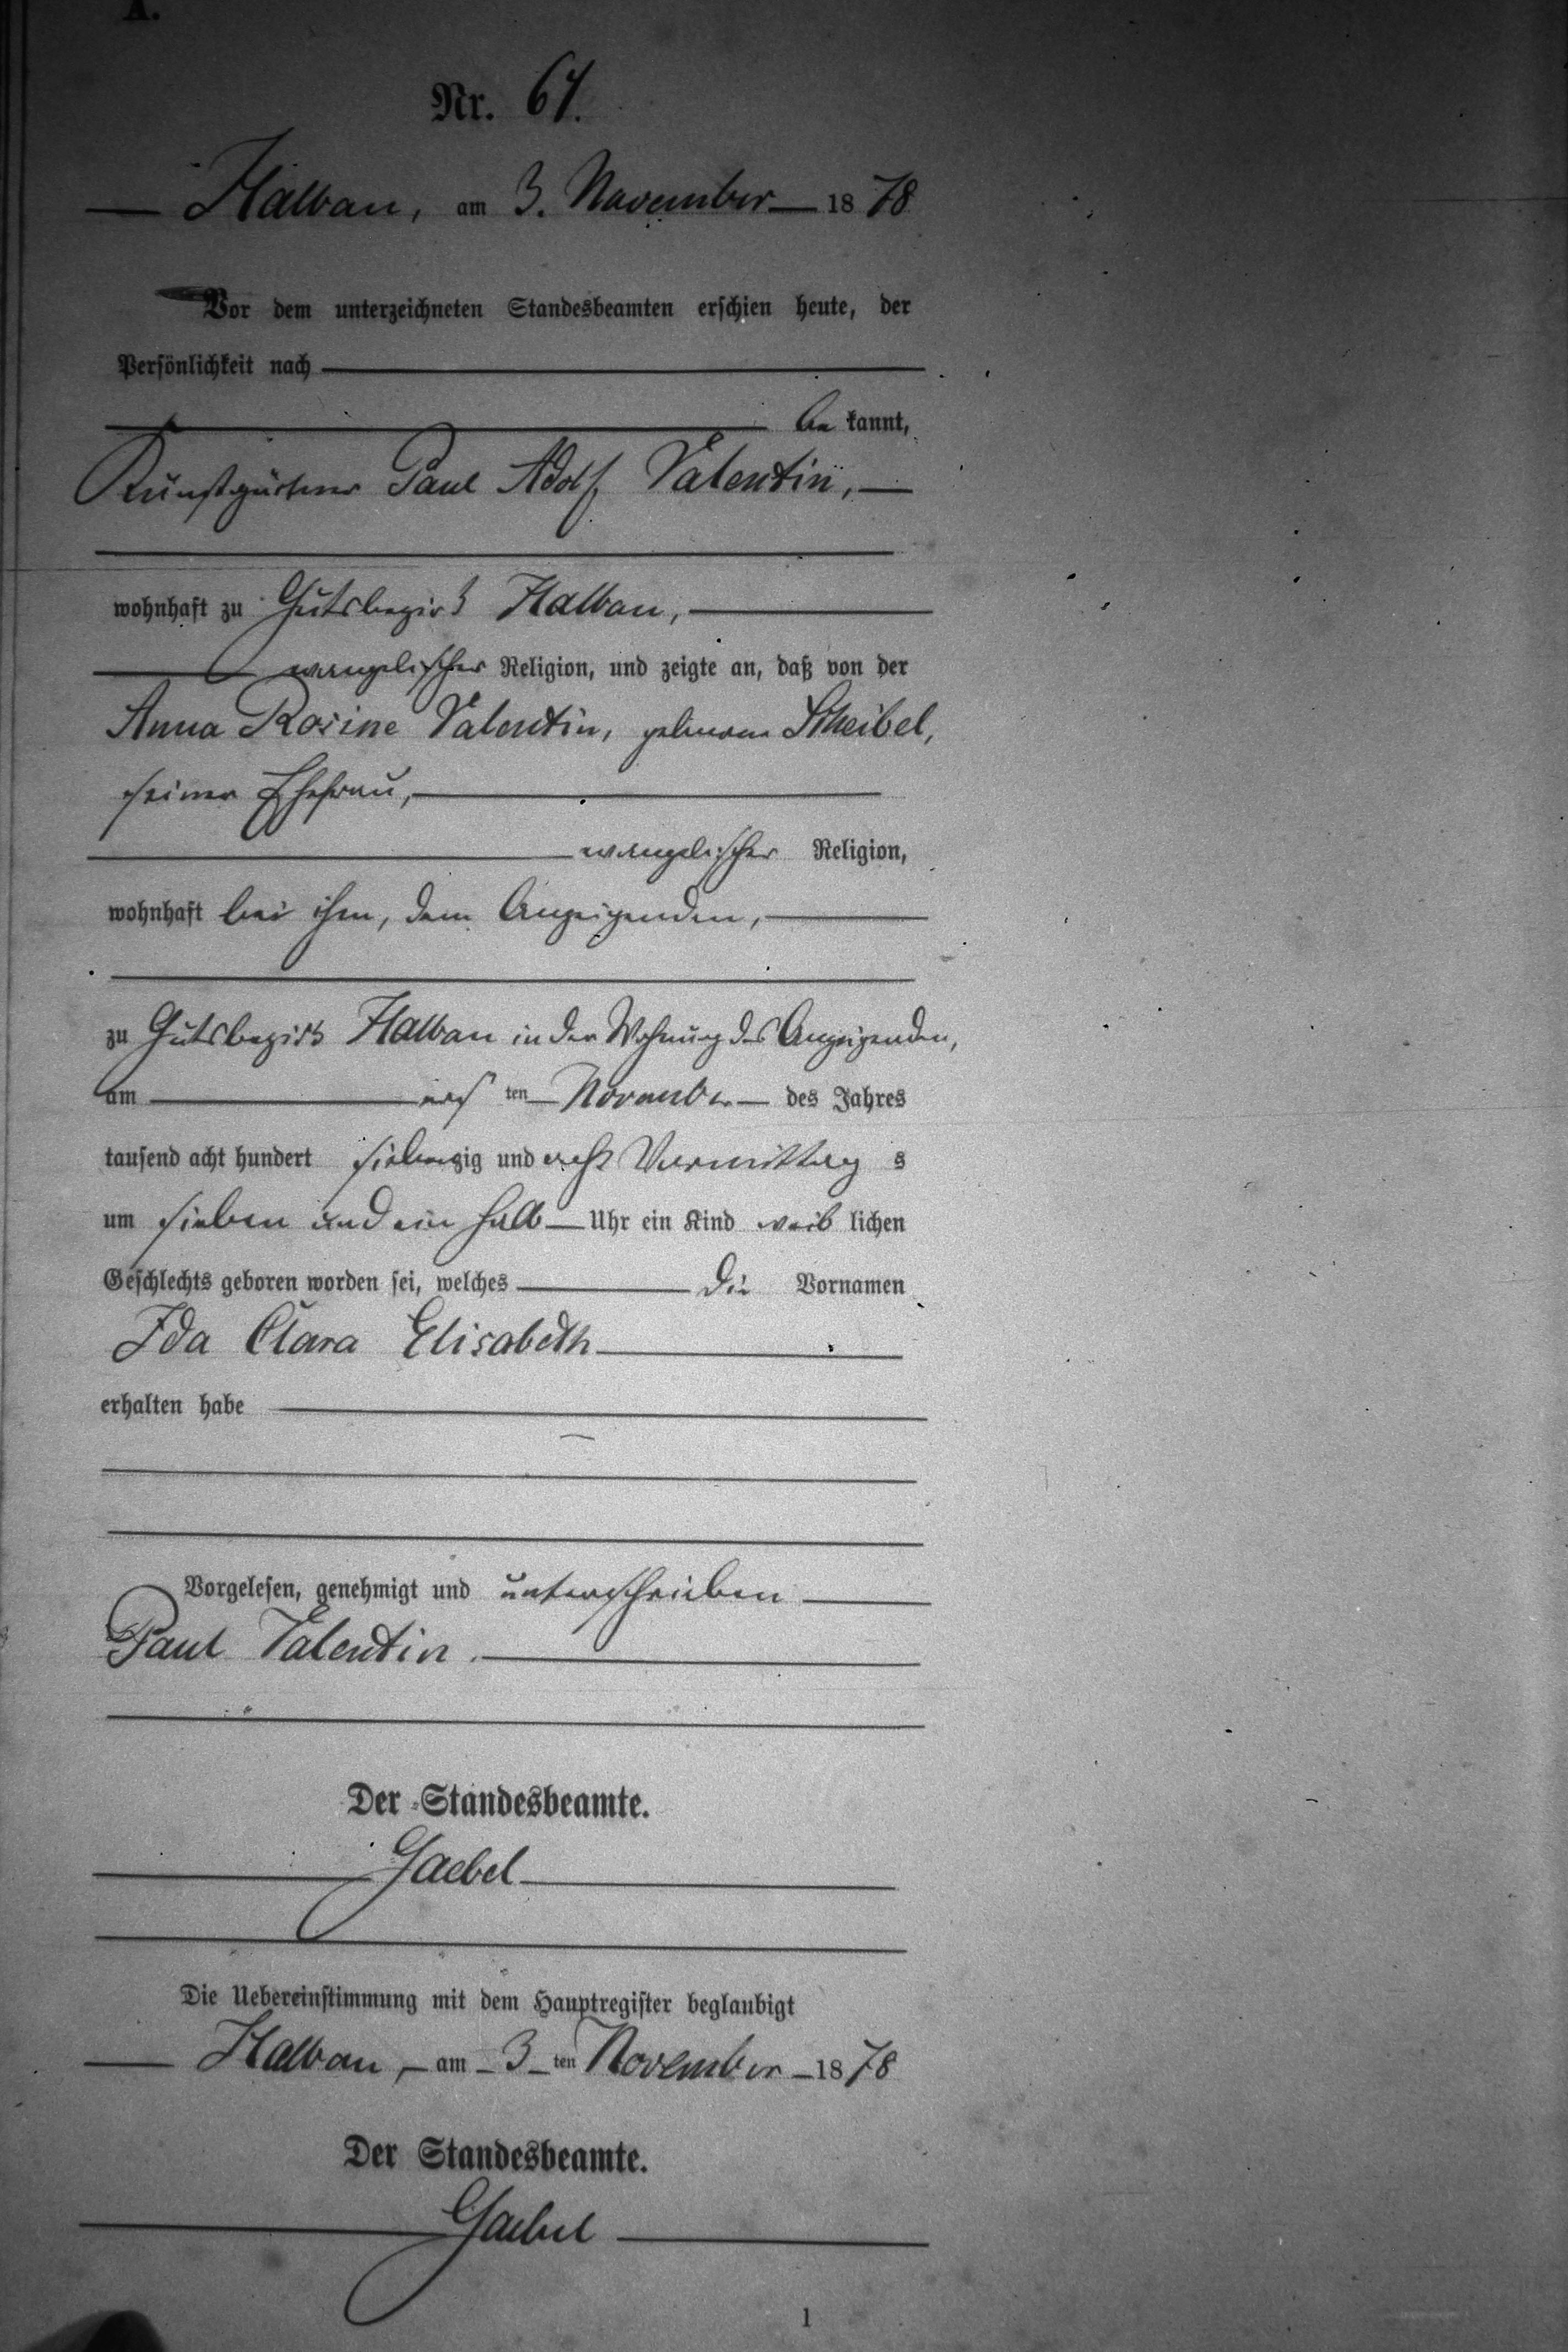 A.
Nr. 61.
Halbau, am 3. November 1878
Vor dem unterzeichneten Standesbeamten erschien heute, der
Persönlichkeit nach
be kannt,
Kunstgärtner Paul Adolf Valentin,
wohnhaft zu Gutsbezirk Halbau,
evangelischer Religion, und zeigte an, daß von der
Anna Rosine Valentin, geborene Scheibel,
seiner Ehefrau,
evangelischer Religion,
wohnhaft bei ihm, dem Anzeigenden,
zu Gutsbezirk Halbau in der Wohnung des Anzeigenden,
am ers ten November des Jahres
tausend acht hundert siebenzig und acht Vormittag s
um sieben und ein halb Uhr ein Kind weib lichen
Geschlechts geboren worden sei, welches die Vornamen
Ida Clara Elisabeth
erhalten habe
Vorgelesen, genehmigt und unterschrieben
Paul Valentin.
Der Standesbeamte.
Gaebel
Die Uebereinstimmung mit dem Hauptregister beglaubigt
Halbau, am 3 ten November 1878
Der Standesbeamte.
Gaebel
1